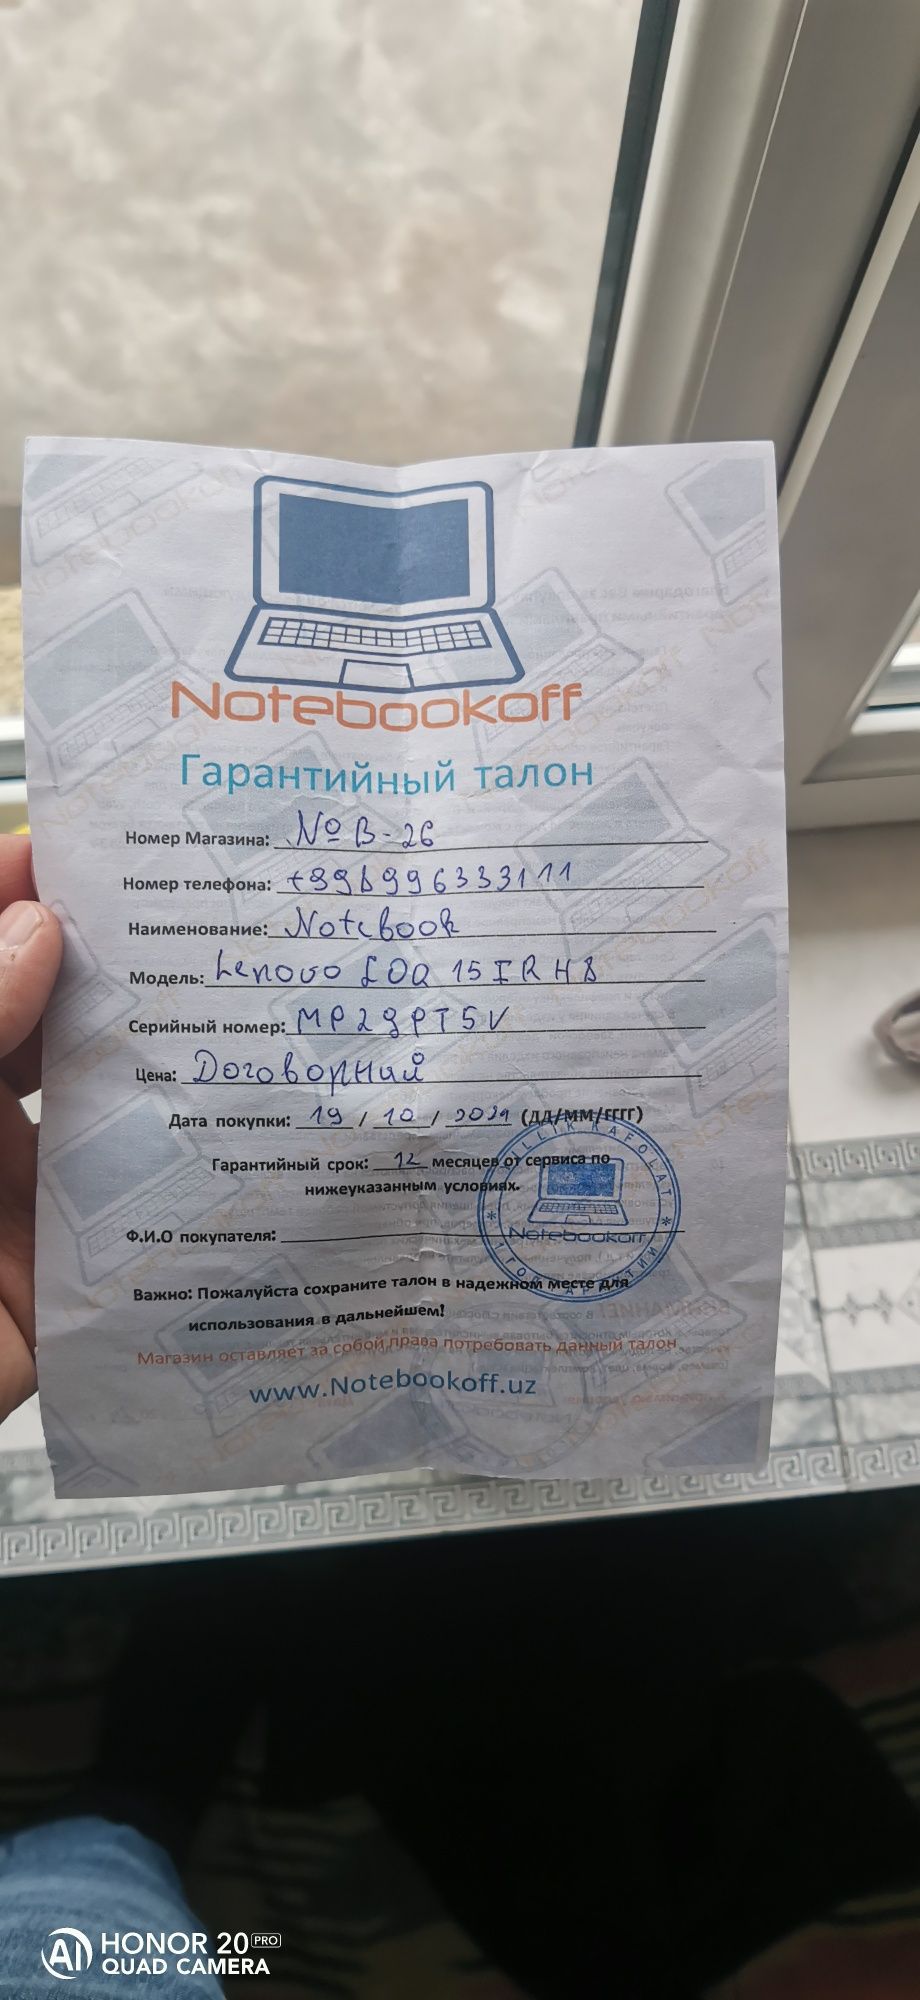 Notebookoff
Гарантийный талон
Номер Магазина: № B-26
Номер телефона: +998996333111
Наименование: Notebook
Модель: Lenovo LOQ 15IRH8
Серийный номер: MP29PT5V
Цена: Договорный
Дата покупки: 19 / 10 / 2024 (ДД/ММ/ГГГГ)
Гарантийный срок: 12 месяцев от сервиса по
нижеуказанным условиях.
Ф.И.О покупателя:
Notebookoff
Важно: Пожалуйста сохраните талон в надежном месте для
использования в дальнейшем!
Магазин оставляет за собой права потребовать данный талон.
www.Notebookoff.uz
AI HONOR 20 PRO
QUAD CAMERA